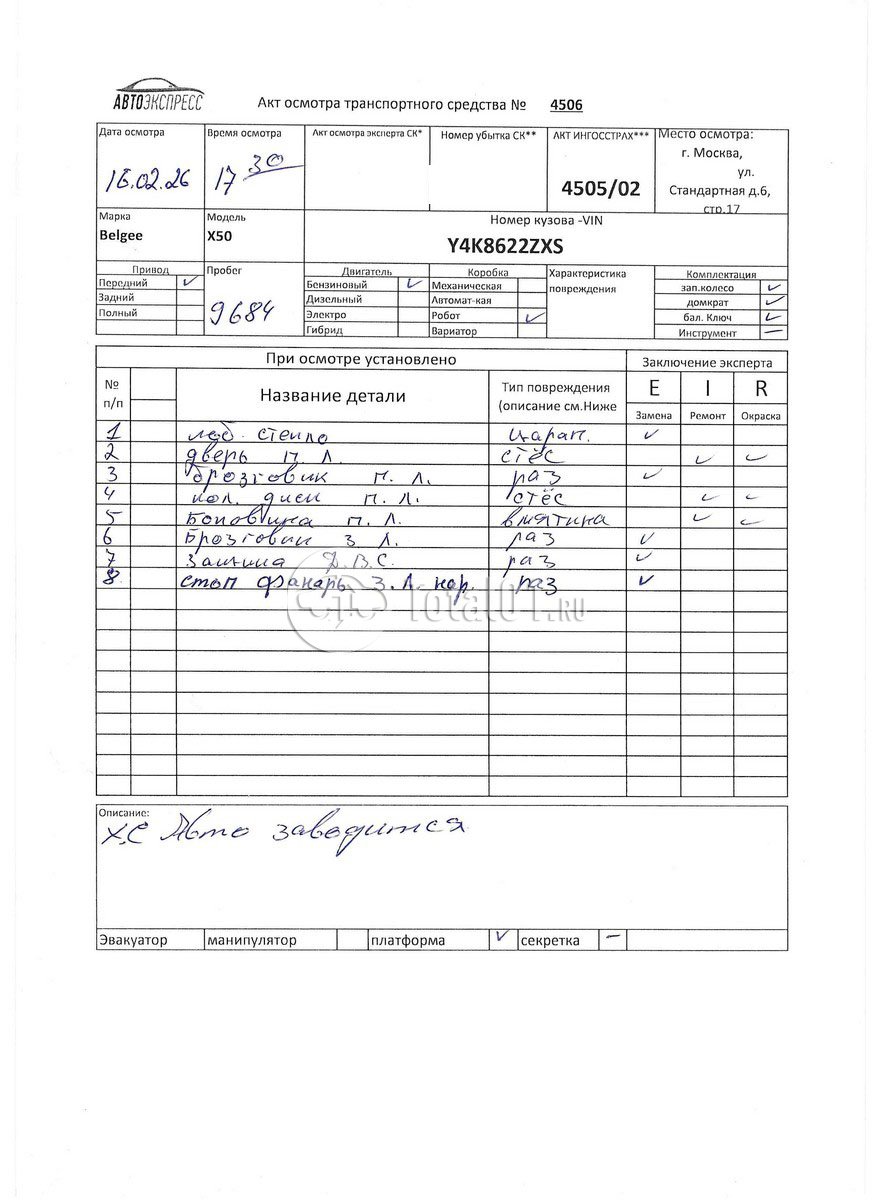 АВТОЭКСПРЕСС
Акт осмотра транспортного средства № 4506
Дата осмотра
Время осмотра
Акт осмотра эксперта СК*
Номер убытка СК**
АКТ ИНГОССТРАХ***
Место осмотра:
16.02.26
17 30
4505/02
г. Москва,
ул.
Стандартная д.6,
стр.17
Марка
Модель
Номер кузова -VIN
Belgee
X50
Y4K8622ZXS
Привод
Пробег
Двигатель
Коробка
Характеристика
повреждения
Комплектация
Передний ✓
9684
Бензиновый ✓
Механическая
зап.колесо ✓
Задний
Дизельный
Автомат-кая
домкрат ✓
Полный
Электро
Робот ✓
бал. Ключ ✓
Гибрид
Вариатор
Инструмент —
При осмотре установлено
Заключение эксперта
№
п/п
Название детали
Тип повреждения
(описание см.Ниже
E I R
Замена Ремонт Окраска
1 лоб. стекло царап. ✓
2 дверь п л. стёс ✓ ✓
3 брозговик п. л. раз ✓
4 кол. диск п. л. стёс ✓ ✓
5 Боковина п. л. вмятина ✓ ✓
6 Брозговик з л. раз ✓
7 Защита Д.В.С. раз ✓
8 стоп фанарь з. л нар. раз ✓
Total01.RU
Описание:
Х,С Авто заводится
Эвакуатор манипулятор платформа ✓ секретка —